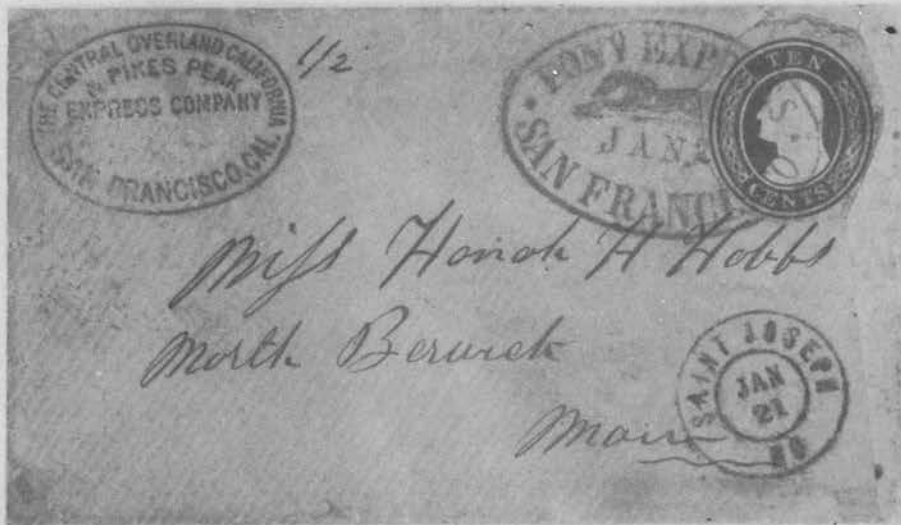 THE CENTRAL OVERLAND CALIFORNIA
& PIKES PEAK
EXPRESS COMPANY
SAN FRANCISCO, CAL.
1/2
PONY EXP
JAN
SAN FRANCI
TEN
CENTS
Miss Honah H Hobbs
North Berwick
Main
SAINT JOSEPH
JAN
21
MO